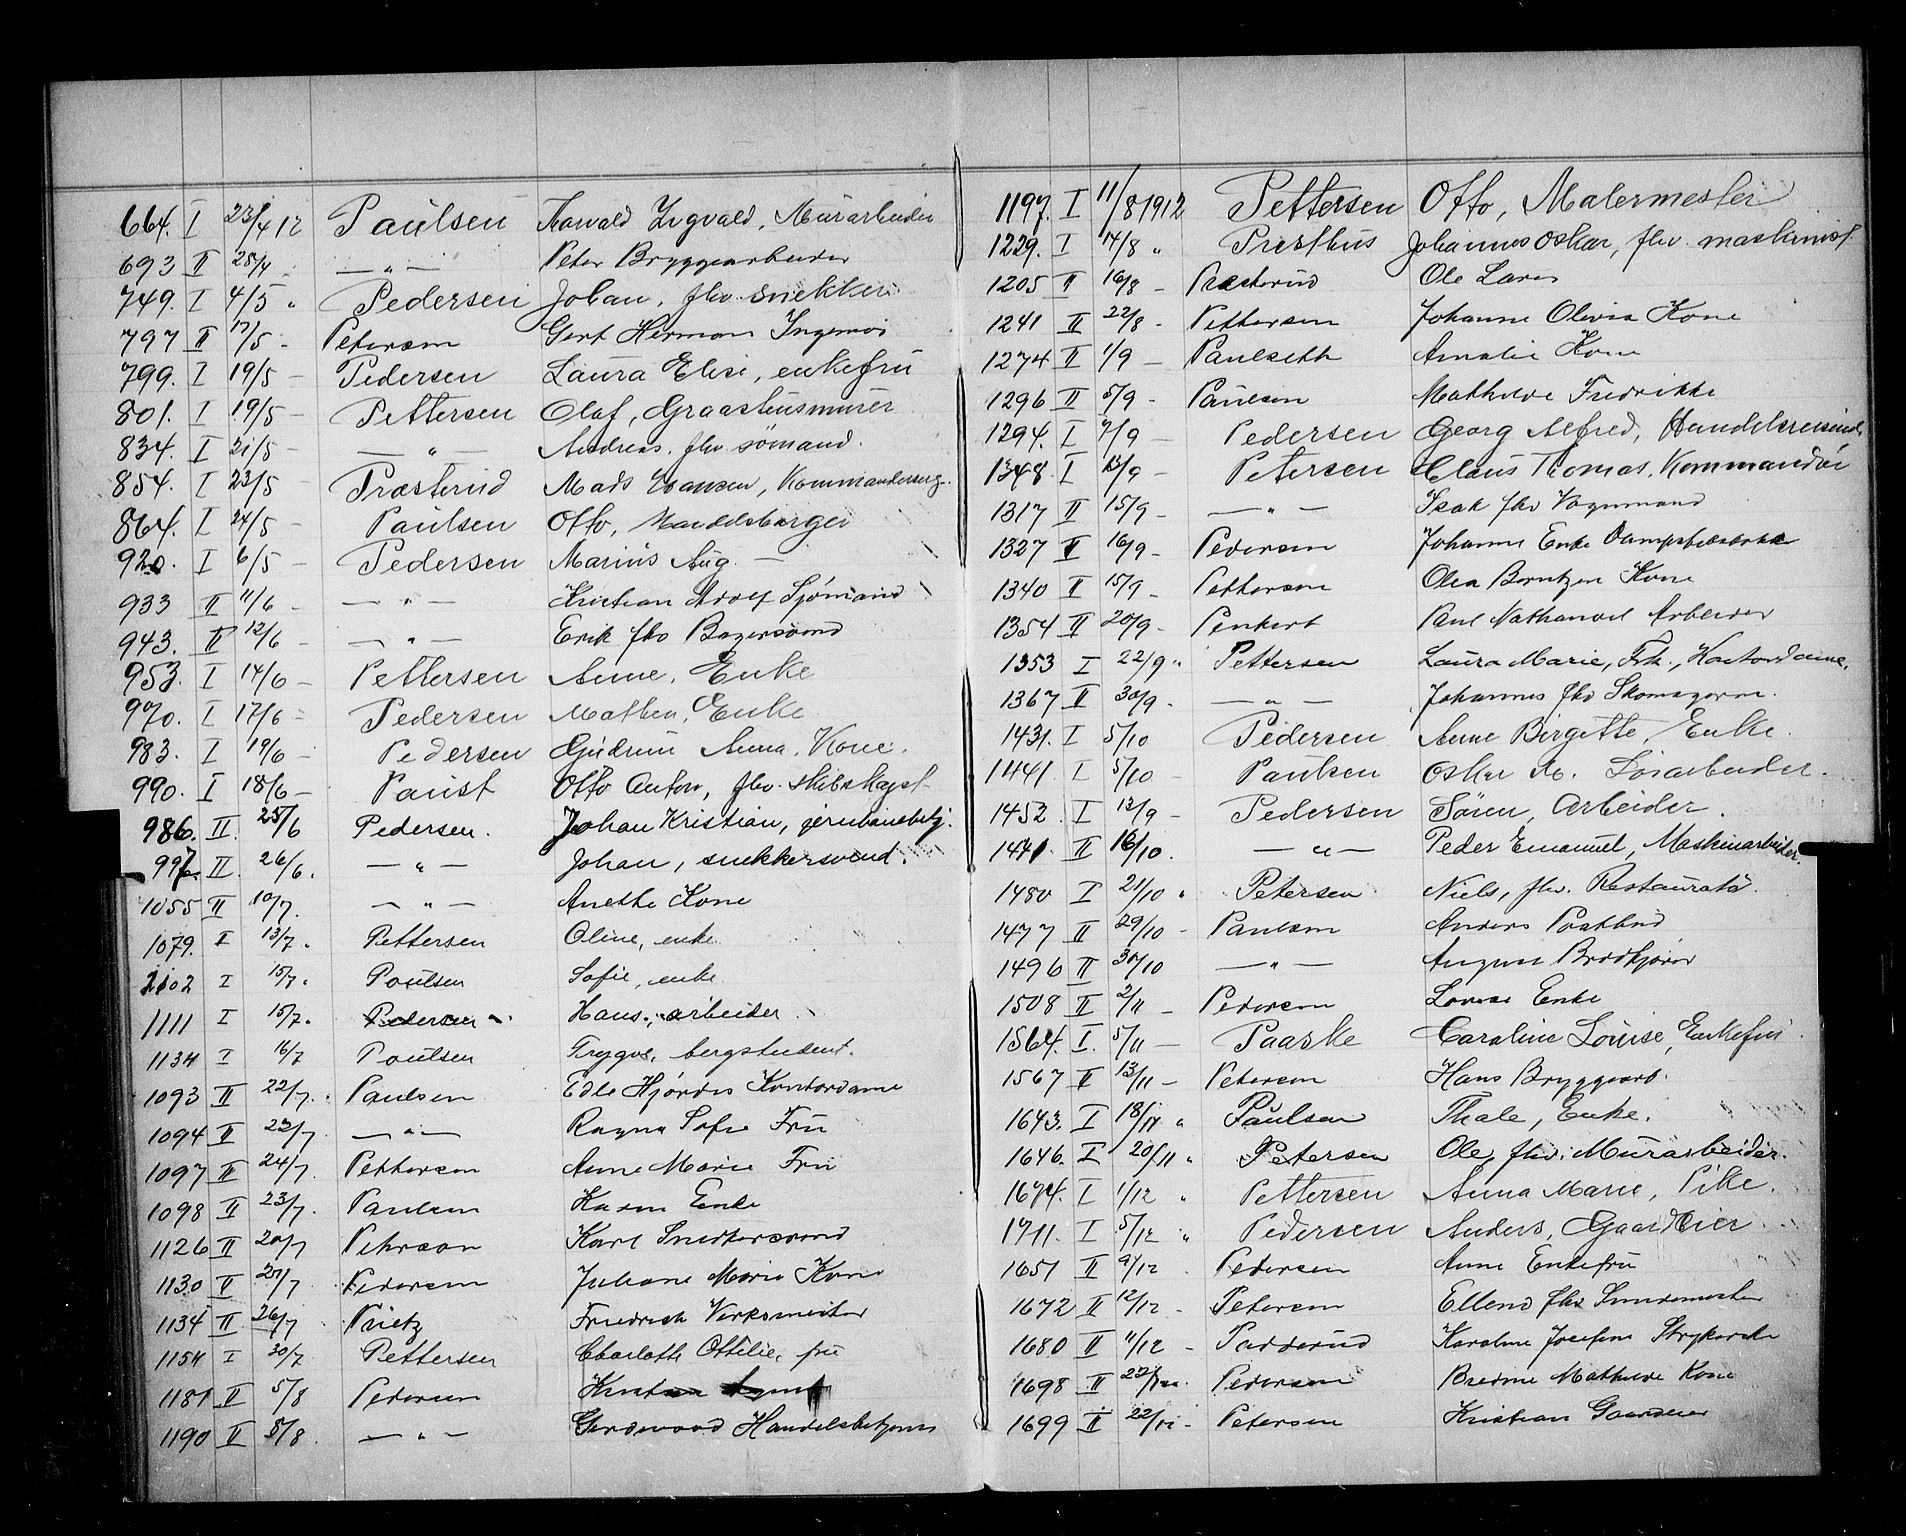 664. I 23/4 12 Paulsen Harald Ingvald, Murarbeider
693 II 25/4 - — " — Peter Bryggearbeider
749. I 4/5 " Pedersen Johan, fhv. snekker
797 II 17/5 - Petersen Gert Herman
799. I 19/5 — Pedersen Laura Elise, enkefru
801. I 19/5 — Pettersen Olaf, Graastensmurer
834. I 21/5 — — " — Andreas, fhv. sømand.
854. I 23/5 — Præsterud Mads Hansen,
864. I 24/5 — Paulsen Otto, Handelsborger
920. I 6/5 — Pedersen Marius Aug. —
933 II 11/6 - — " — Kristian Adolf Sjømand
943. II 12/6 - — " — Erik fhv Bagersvend
953. I 14/6 — Pettersen Anne, Enke
970. I 17/6 — Pedersen Mathea, Enke
983. I 19/6 — Pedersen Gudrun Anna, Kone.
990. I 18/6 — Paust Otto Anton, fhv. skibskapt.
986. II. 25/6 Pedersen. Johan Kristian, jernbanebetj.
997. II. 26/6. — " — Johan, snekkersvend.
1055 II 10/7. — " — Anethe Kone
1079. I 13/7. Pettersen Oline, enke
1102 I 15/7. Poulsen Sofie, enke
1111 I 15/7. Pedersen Hans, arbeider
1134 I 16/7 Poulsen Trygve, bergstudent.
1093 II 22/7. Paulsen Edle Hjørdis Kontordame
1094 II 23/7 — " — Ragna Sofie Fru
1097 II 24/7 Pettersen Anne Marie Fru
1098 II 23/7. Paulsen Karen Enke
1126 II 20/7 Petersen Karl Snedkersvend
1130 II 27/7 Pedersen Juliane Marie Kone
1134 II 26/7 Prietz Friedrich Verksmester
1154 I 30/7 Pettersen Charlotte Ottilie, fru
1181 II 5/8 Pedersen Kristian
1190 II 8/8. — " — Handelsbetjent
1197. I 11/8 1912 Pettersen Otto, Malermester
1229. I 14/8 " Presthus Johannes Oskar, fhv. maskinist.
1205 II 16/8 - Præsterud Ole Larsen
1241 II 22/8 - Pettersen Johanne Olivia Kone
1274 II 1/9 — Paulseth Amalie Kone
1296 II 5/9 - Paulsen Mathilde Fredrikke
1294. I 7/9 — Pedersen Georg Alfred, Handelsreisende
1348. I 13/9 - Petersen Claus Thomas, Kommandør
1317 II 15/9 - — " — Isak fhv Vognmand
1327 II 16/9 - Pedersen Johanne Enke
1340 II 15/9 - Pettersen Olea Berntzen Kone
1354 II 20/9 - Penkert Paul Nathanael Arbeider
1353 I 22/9 " Pettersen Laura Marie, Frk., Kontordame.
1367 II 30/9. — " — Johannes fhv Skomagerm.
1431. I 5/10 Pedersen Anne Birgitte, Enke.
1441. I 5/10 - Paulsen Oskar M. Linarbeider.
1452. I 13/9 - Pedersen Søren, Arbeider.
1471 II 16/10. — " — Peder Emanuel, Maskinarbeider.
1480 I 21/10 " Petersen Niels, fhv. Restauratør.
1477 II 29/10 - Paulsen Anders Postbud
1496 II 30/10 — " — August Brødkjører
1508 II 2/11 - Pedersen Lovise Enke
1564. I. 5/11 — Paaske Caroline Louise, Enkefru.
1567 II 13/11 - Petersen Hans Bryggearb.
1643. I 18/11 " Paulsen Thale, Enke.
1646. I 20/11 " Petersen Ole, fhv. Murarbeider.
1674. I 1/12 " Pettersen Anna Marie, Pike.
1711. I 5/12 " Pedersen Anders, Gaardeier
1651 II 9/12 - Pedersen Anne Enkefru
1672 II 12/12 - Petersen Ellend fhv
1680 II 11/12 - Padderud Karoline Josefine Strykerske
1698 II 22/12 Pedersen Bredine Mathilde Kone
1699 II 22/12 - Petersen Kristian Gaardeier